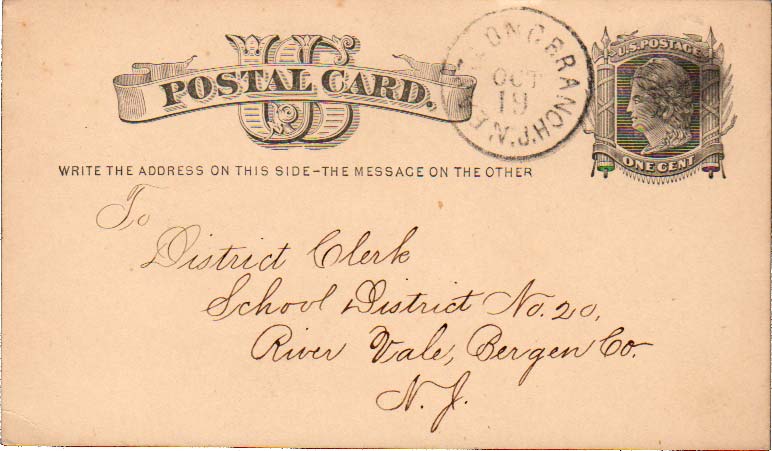 US
POSTAL CARD.
LONG BRANCH, N.J.
OCT
19
U.S. POSTAGE
ONE CENT
WRITE THE ADDRESS ON THIS SIDE–THE MESSAGE ON THE OTHER
To
District Clerk
School District No. 20,
River Vale, Bergen Co.
N. J.